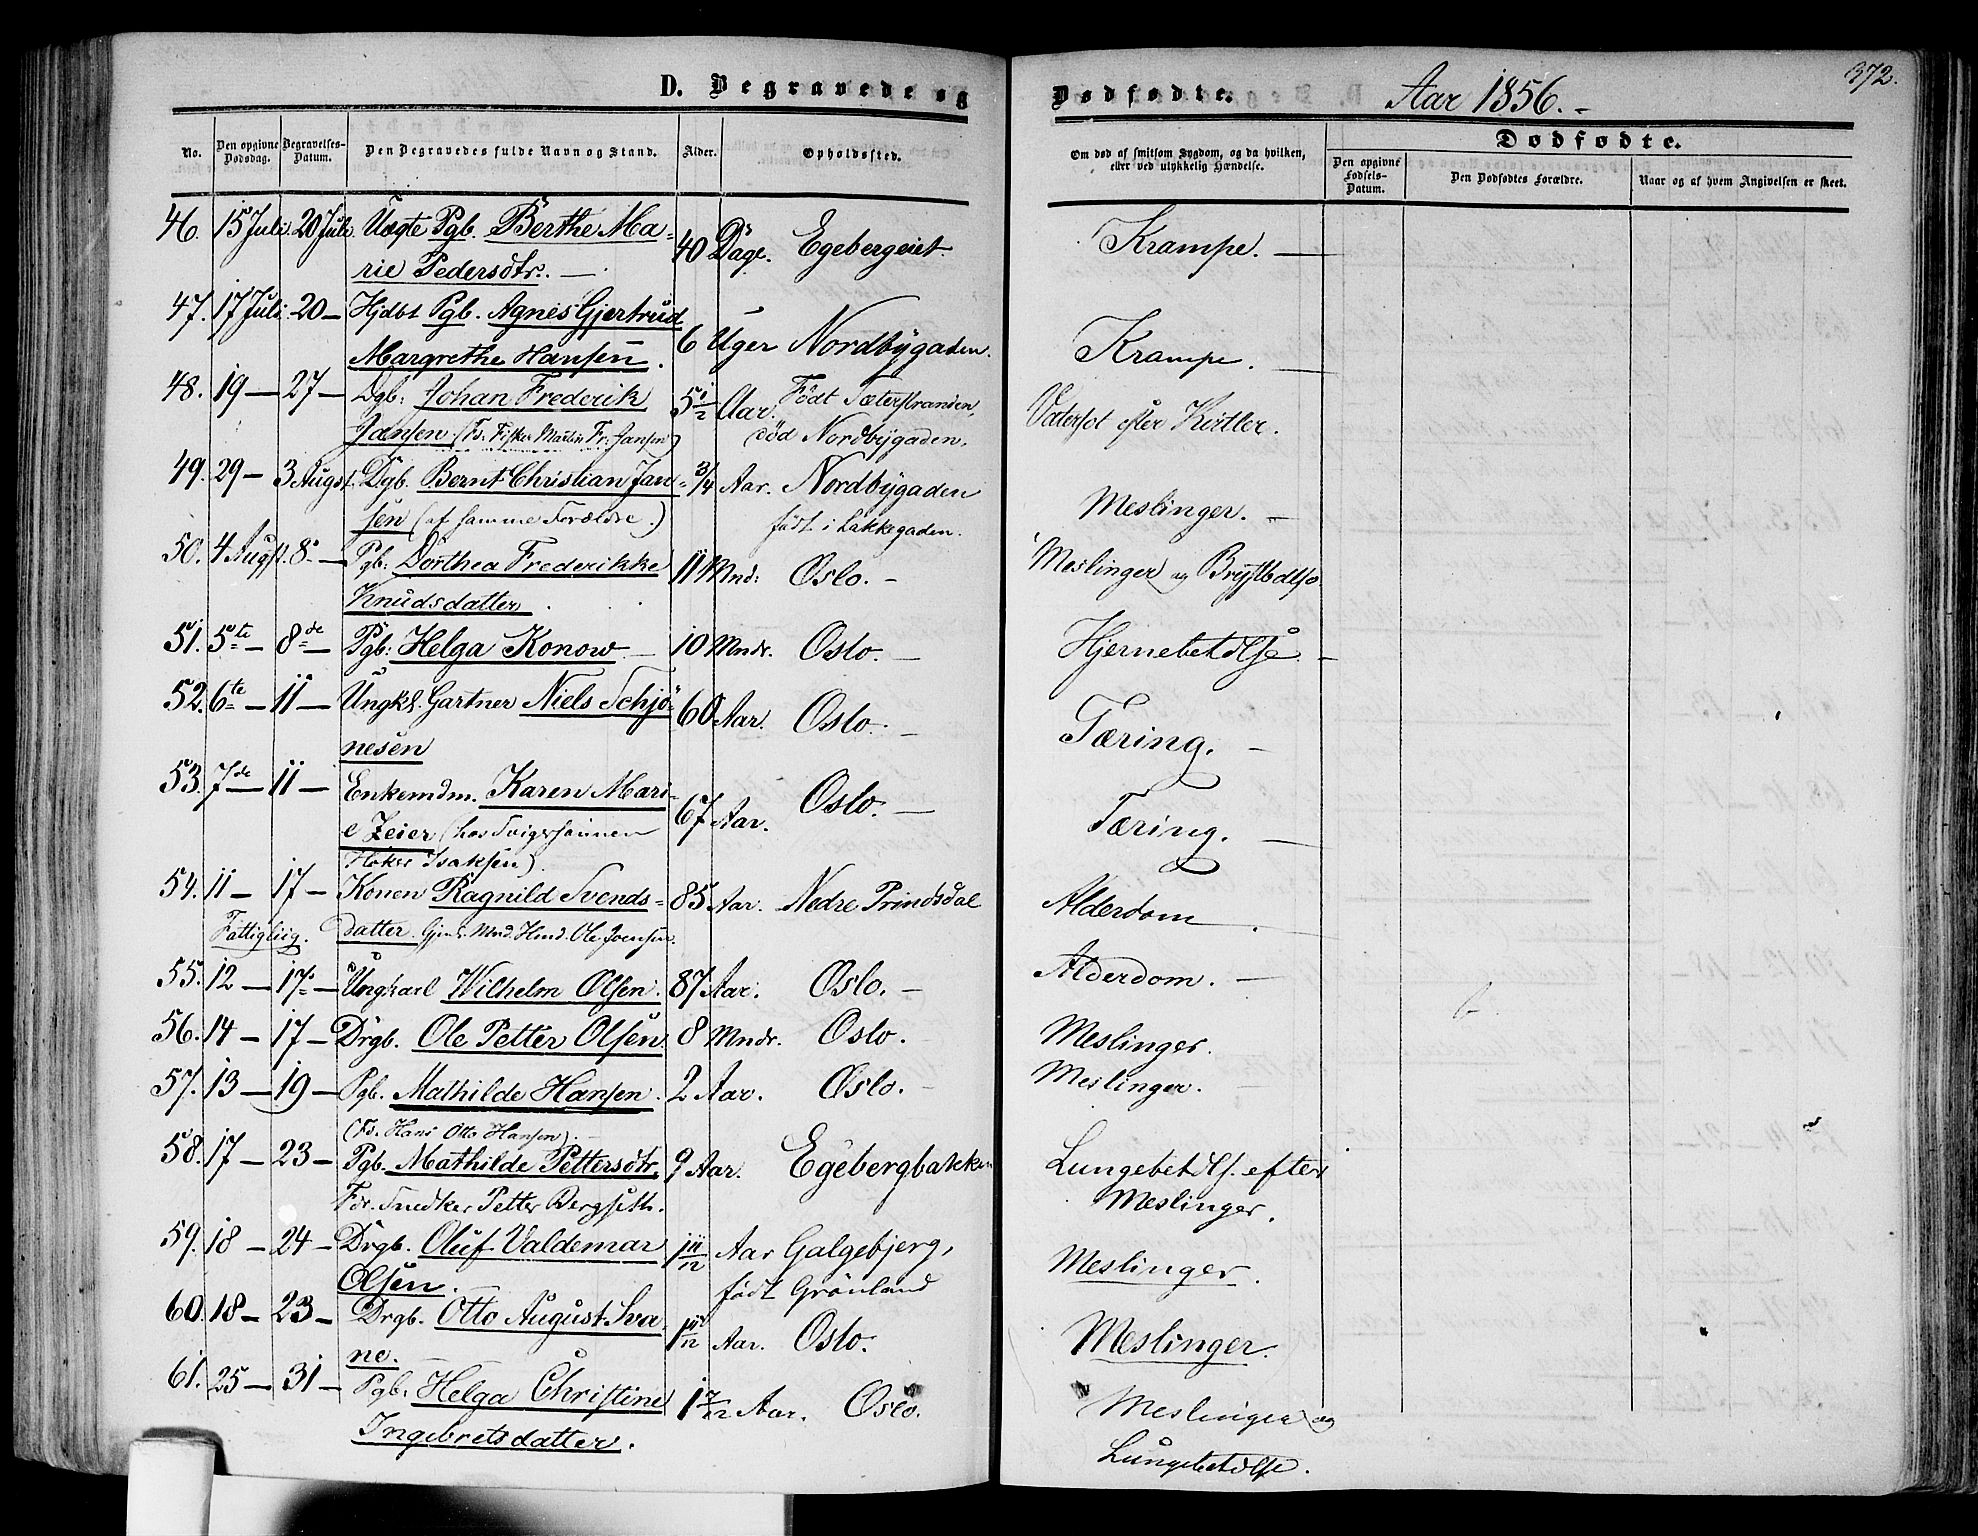 D. Begravede og Dødfødte. Aar 1856. 372.
No. Den opgivne Dødsdag. Begravelses-Datum. Den Begravedes fulde Navn og Stand. Alder. Opholdssted. Om død af smitsom Sygdom, og da hvilken, eller ved ulykkelig Hændelse. Dødfødte.
Den opgivne Fødsels-Datum. Den Dødfødtes Forældre. Naar og af hvem Angivelsen er skeet.
46. 15 Juli. 20 Juli. Uægte Pgb. Berthe Ma- 40 Dage. Egebergeiet. Krampe. —
rie Pedersdtr. —
47. 17 Juli. 20 — Hjdbt Pgb. Agnes Gjertrud 6 Uger Nordbygaden. Krampe. —
Margrethe Hansen.
48. 19 — 27 — Dgb. Johan Frederik 5 1/2 Aar. Født Sæterstranden, Vatersot efter Kirtler.
Jansen (F. Fisker Martin Fr. Jansen) död Nordbygaden.
49. 29 — 3 Augst. Dgb. Bernt Christian Jan- 3/4 Aar. Nordbygaden Meslinger. —
sen (af samme Forældre.) födt i Lakkegaden.
50. 4 Augst. 8 — Pgb. Dorthea Frederikke 11 Mnd: Oslo. — Meslinger og Brystbetlse.
Knudsdatter.
51. 5te — 8de — Pgb. Helga Konow — 10 Mndr. Oslo. — Hjernebetdlse. —
52. 6te — 11 — Ungkl. Gartner Niels Schjö- 60 Aar. Oslo. — Tæring. —
nesen
53. 7de — 11 — Enkemdm. Karen Mari- 67 Aar. Oslo. — Tæring. —
e Zeier (hos Svigersönnen
Höker Isaksen).
54. 11 — 17 — Konen Ragnild Svends- 85 Aar. Nedre Prindsdal Alderdom.
Fattiglig. datter. Gjens. Mnd. Husmd. Ole Svensen.
55. 12 — 17 — Ungkarl Wilhelm Olsen. 87 Aar. Oslo. — Alderdom. —
56. 14 — 17 — Drgb. Ole Petter Olsen. 8 Mndr. Oslo. Meslinger.
57. 13 — 19 — Pgb. Mathilde Hansen. 2 Aar. Oslo. Meslinger.
(F. Hans Otto Hansen).
58. 17 — 23 — Pgb. Mathilde Pettersdtr. 9 Aar. Egebergbakken Lungebetdls. efter
For. Snedker Petter Bergseth. Meslinger.
59. 18 — 24 — Drgb. Oluf Valdemar 1 3/12 Aar Galgebjerg, Meslinger.
Olsen. födt Grönland
60. 18 — 23 — Drgb. Otto August Sva- 1 3/12 Aar. Oslo. Meslinger.
ne.
61. 25 — 31 — Pgb. Helga Christine 1 7/12 Aar. Oslo. Meslinger og
Ingebretsdatter. Lungebetdlse.